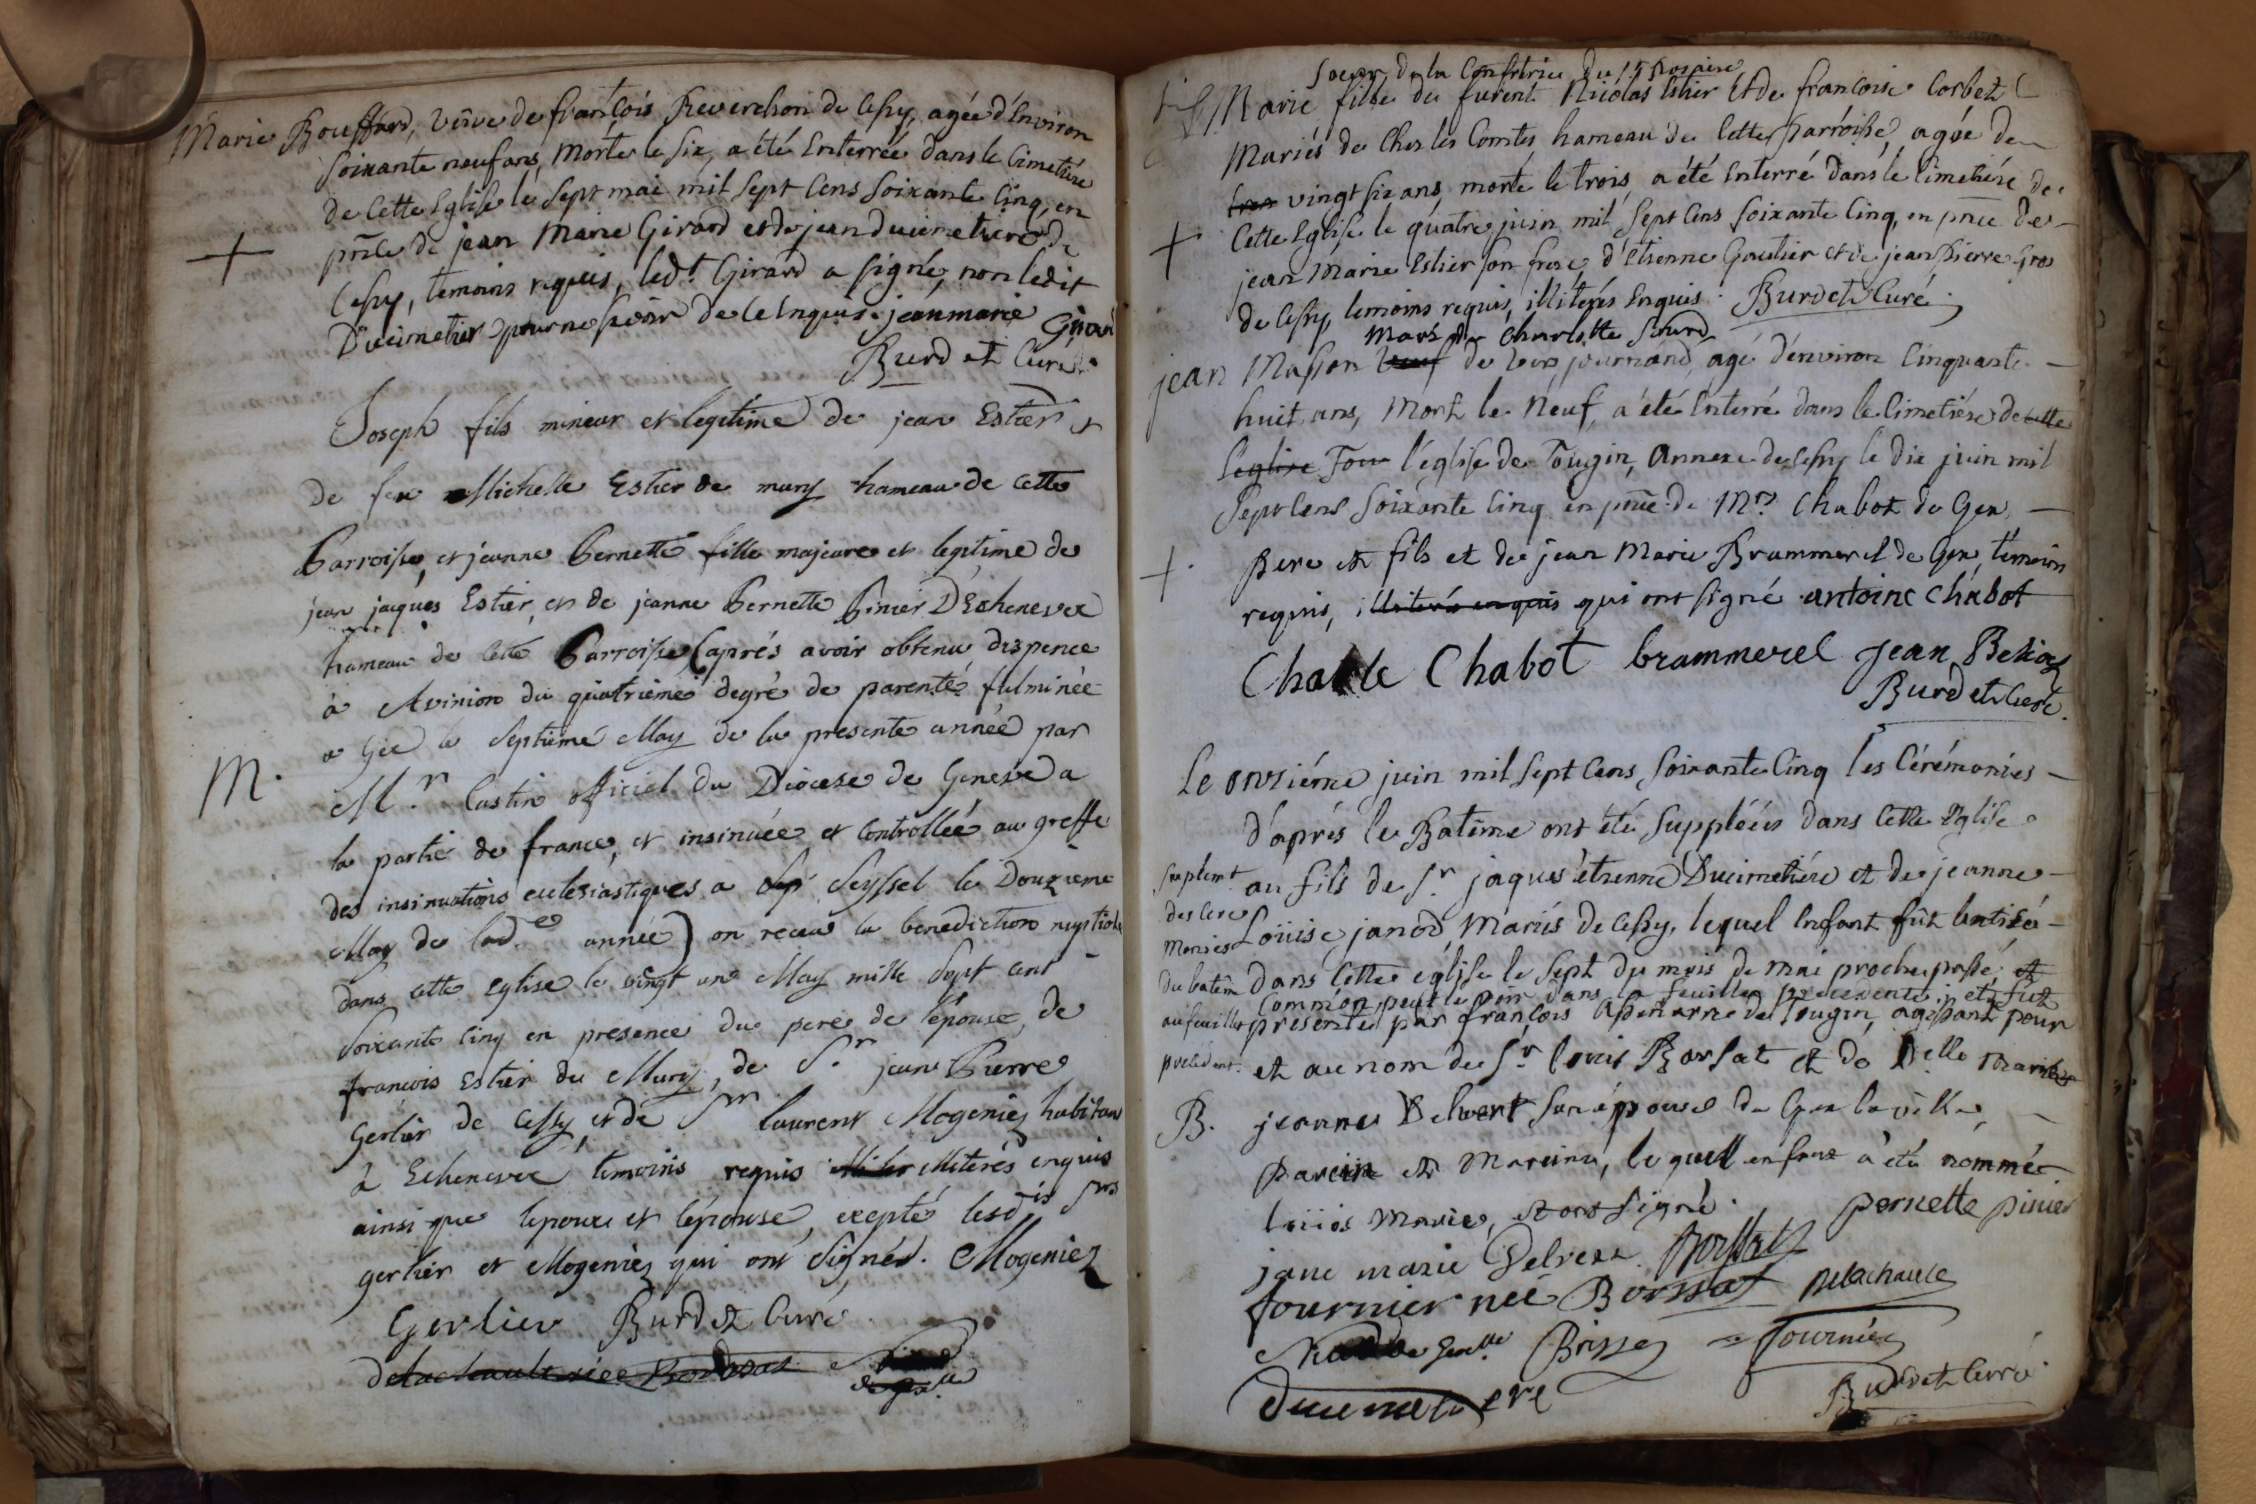 Marie Bouffard, vêuve de francois Reverchon de Cessy, agée d'Environ
soixante neuf ans, Morte le six, a été Enterrée dans le Cimetiére
de Cette Eglise le sept mai mil sept Cens soixante Cinq, en
pñce de jean Marie Girard et de jean Ducimetiere de
Cessy, temoins requis, led.t Girard a signé, non ledit
Ducimetier pour ne sçavoir de ce Enquis. jean marie Girard
Burdet Curé.
Joseph fils mineur et legitime de jean Estier et
de feu Michelle Estier de mury hameau de cette
Parroisse, et jeanne Pernette fille majeure et legitime de
jean jaques Estier, et de jeanne Pernette Pinier D'Echenevex
hameau de cette Parroisse, (aprés avoir obtenu dispence
à Avinion du quatriéme degré de parenté fulminée
a Gex le septieme May de la presente année par
M.r Castin officiel du Diocese de Geneve a
la partie de france, et insinuée et controllée au greffe
M.
des insinuations ecclesiastiques a Seyssel le Douzieme
May de lad.e année) on receu la benediction nuptiale
dans cette eglise le vingt un May mille Sept cent
Soixante cinq en presence du pere de l'épouse, de
francois Estier du Mury, de S.r jean Pierre
Gerlier de Cessy, et de S.r laurent Mogeniez habitan
à Echenevex, temoins requis illiterés enquis
ainsi que l'epoux et l'épouse, excepté lesdis Srs
gerlier et Mogeniez qui ont signés. Mogeniez
Gerlier Burdet Curé
Delachault née Borssat
Soeur de la Confrérie du St Rosaire
Marie fille de furent Nicolas Estier Et de francoise Corbet
Mariés de Chez les Comtes hameau de Cette Parroisse, agée de
vingt six ans, morte le trois, a été Enterré dans le Cimetiére de
Cette Eglise le quatre juin mil sept Cens soixante Cinq, en pñce de
jean Marie Estier son frere, d'Etienne Goutier et de jean Pierre Gros
de Cessy, temoins requis, illiterés Enquis. Burdet Curé.
Mari de Charlotte Sourd
jean Masson veuf de journand agé d'environ Cinquante
huit ans, Mort le Neuf, a été Enterré dans le Cimetiére de cette
l'eglise l'église de Tougin, Annexe de Cessy le dix juin mil
Sept Cens soixante Cinq en pñce de Mrs Chabot de Gex
Pere et fils et de jean Marie Brammerel de Gex, temoins
requis, illiterés enquis qui ont signé antoine chabot
Charle Chabot brammerel Jean
Burdet Curé.
Le onziéme juin mil sept Cens soixante Cinq les Cérémonies
d'aprés le Batême ont été suppléées dans Cette Eglise
au fils de S.r jaques étienne Ducimetiére et de jeanne
Suplem.t des Ceremonies du batême au feuillet precedent.
Louise janod, Mariés de Cessy, lequel Enfant fût batisé
dans Cette eglise le Sept du mois de mai proche passé,
Comme on peut le voir dans la feuille precedente, et fut
présenté par francois de Tougin, agissant pour
et au nom de S.r louis Borsat et de D.elle Marie
B.
jeanne Delvert son épouse de Gex la ville,
Parein et Mareine, lequel enfant a été nommé
louis Marie, et ont signé. pernette pinier
jane marie Borssat
fournier neé Borssat Delachault
Brisse Fournier
Ducimetiere
Burdet Curé.